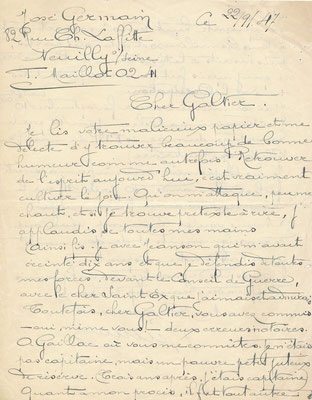 José Germain Ce 22/9/47
82 Rue Ch. Laffitte
Neuilly s/Seine
T. Maillot 02
Cher Galtier.
Je lis votre malicieux papier et me
délecte d'y trouver beaucoup de bonne
humeur comme autrefois. Retrouver
de l'esprit aujourd'hui, c'est vraiment
cultiver la joie. Qu'on attaque, peu me
chaut, et si je trouve prétexte à rire, j'
applaudis de toutes mes mains
Ainsi fis-je avec Jeanson qui m'avait
éreinté dix ans et que je défendis de toutes
mes forces, devant le Conseil de Guerre,
avec le cher Saint Ex que j'aimais et admirais
Toutefois, cher Galtier, vous avez commis
- oui, même vous! - deux erreurs notoires.
O Gaillac où vous me connûtes, je n'étais
pas capitaine, mais un pauvre petit juteux
de réserve. Trois ans après, j'étais capitaine
Quant à mon procès, il fut tout autre